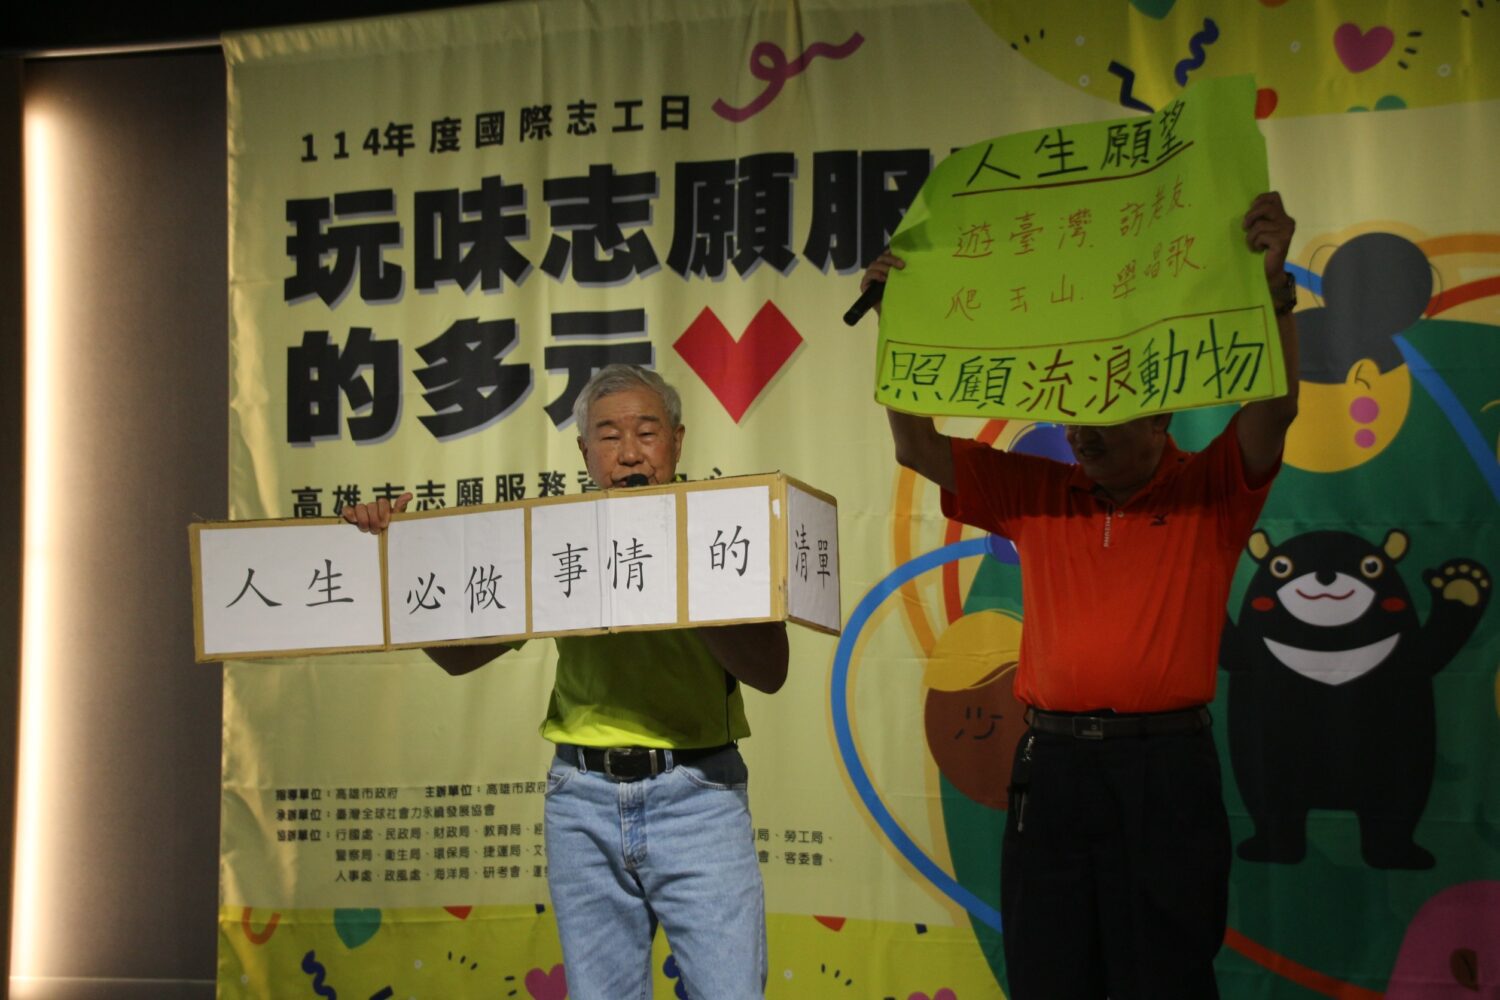 114年度國際志工日
玩味志願服
的多元
高雄市志願服務資
心
人生必做事情的清單
人生願望
遊臺灣.訪老友.
爬玉山.學唱歌.
照顧流浪動物
指導單位：高雄市政府 主辦單位：高雄市政府
承辦單位：臺灣全球社會力永續發展協會
協辦單位：行國處、民政局、財政局、教育局、經
局、勞工局、
警察局、衛生局、環保局、捷運局、文
會、客委會、
人事處、政風處、海洋局、研考會、運